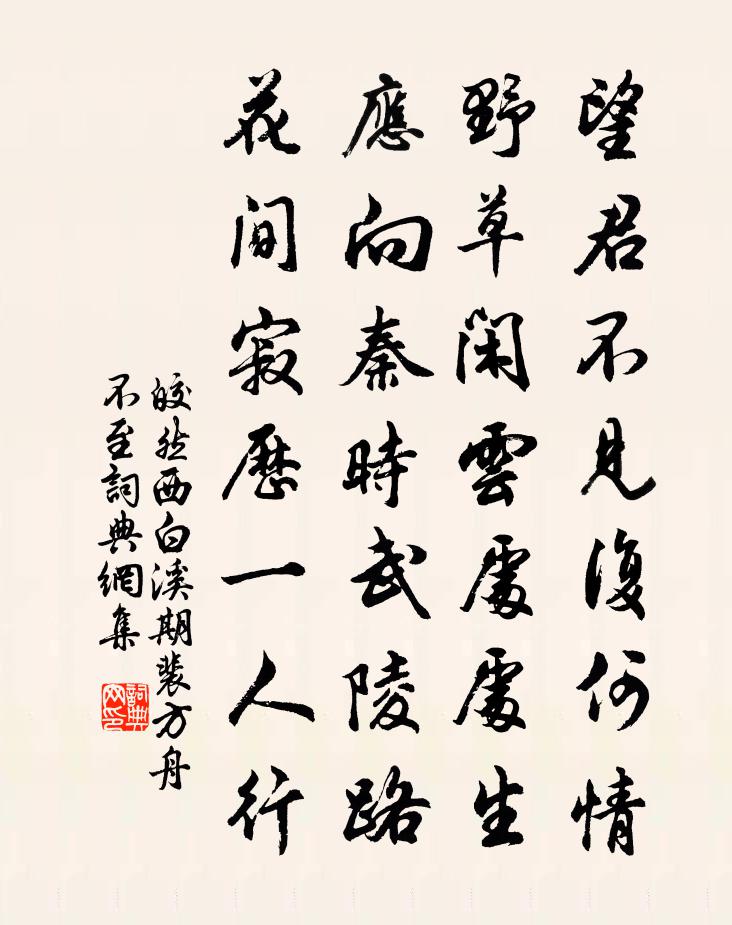 望君不見復何情
野草閑雲處處生
應向秦時武陵路
花間寂歷一人行
皎然西白溪期裴方舟
不至詞典網集
詞典
网印